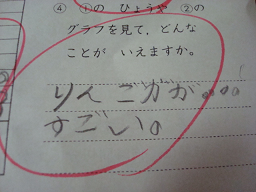 ④ ①の ひょうや ②の
グラフを見て、どんな
ことが いえますか。
りんごがが...。
すごしい。